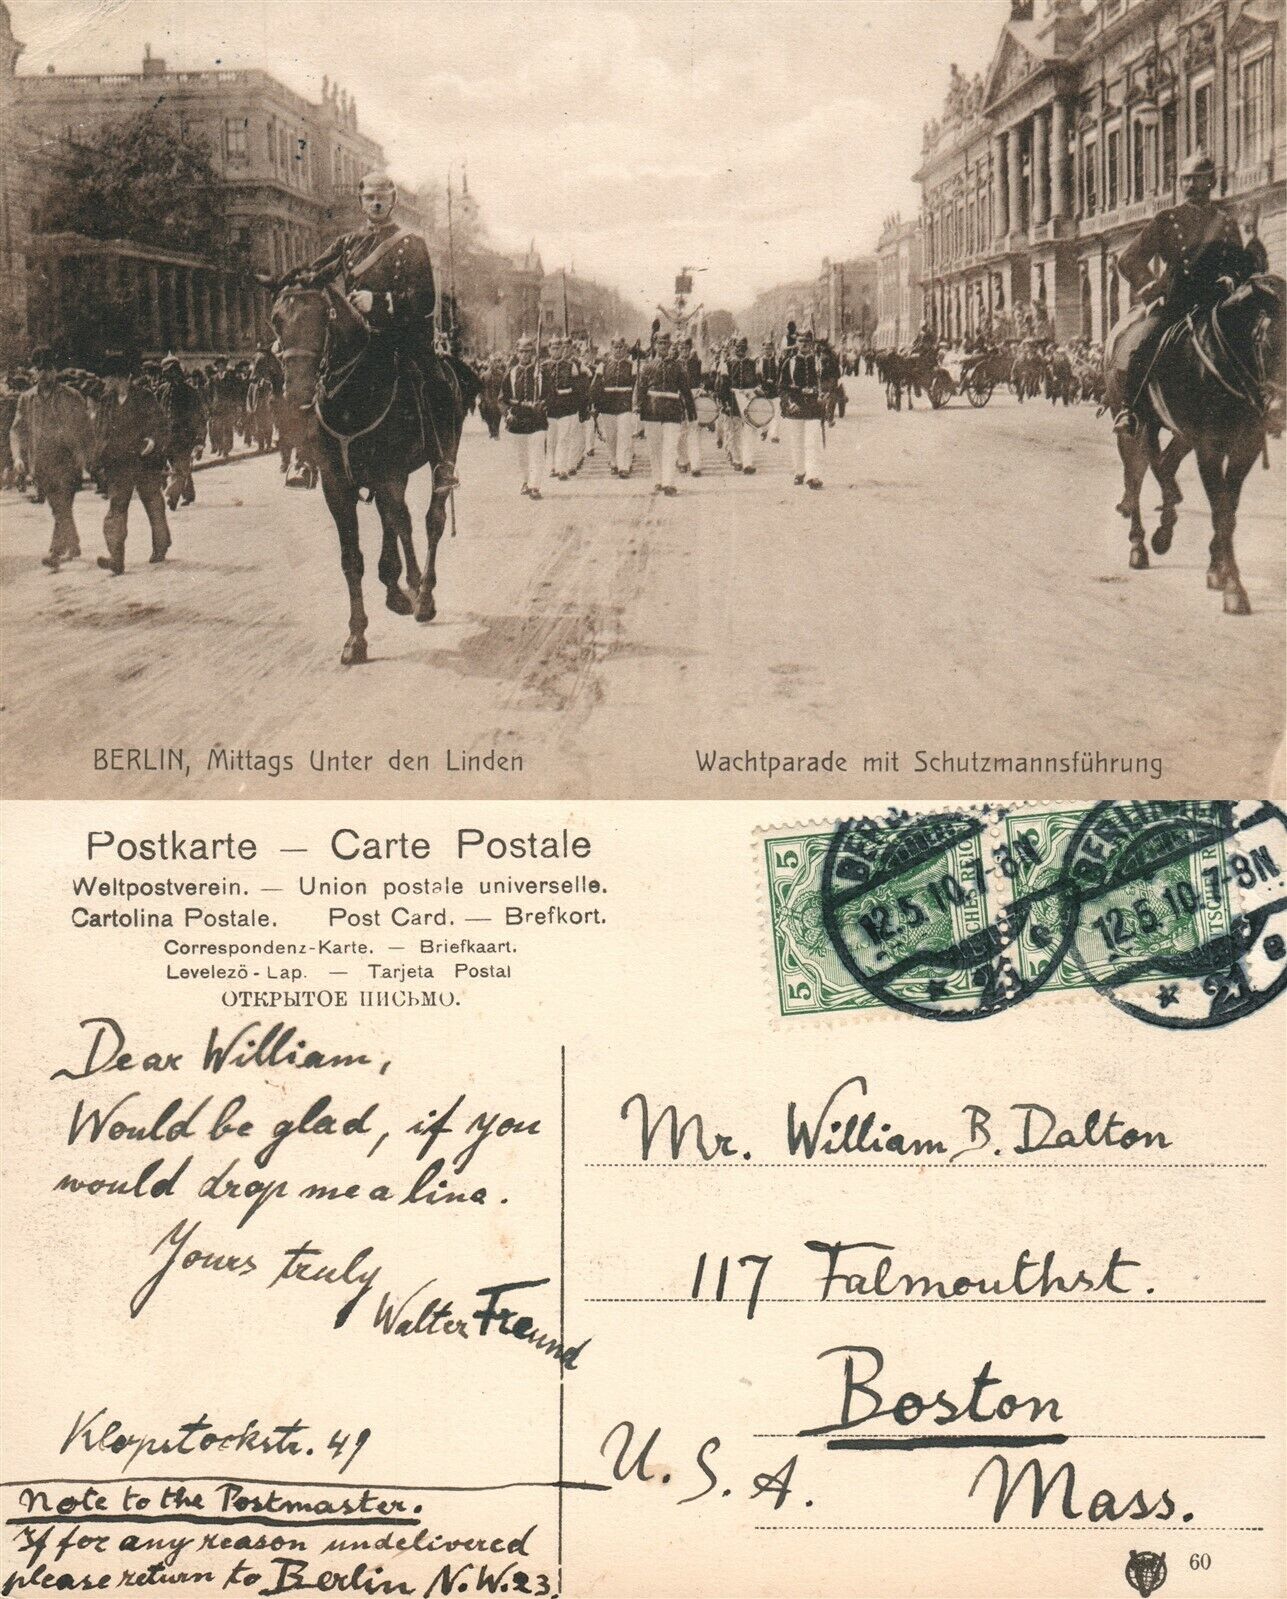 BERLIN, Mittags Unter den Linden
Wachtparade mit Schutzmannsführung
Postkarte — Carte Postale
Weltpostverein. — Union postale universelle.
Cartolina Postale. Post Card. — Brefkort.
Correspondenz-Karte. — Briefkaart.
Levelezö-Lap. — Tarjeta Postal
ОТКРЫТОЕ ПИСЬМО.
5
5
5
5
BERLIN
12.5.10.7-8N
* 21 e
12.5.10.7-8N
* 21 e
Dear William,
Would be glad, if you
would drop me a line.
Yours truly
Walter Freund
Klopstockstr. 49
Note to the Postmaster.
If for any reason undelivered
please return to Berlin N.W.23.
Mr. William B. Dalton
117 Falmouthst.
Boston
U.S.A. Mass.
60